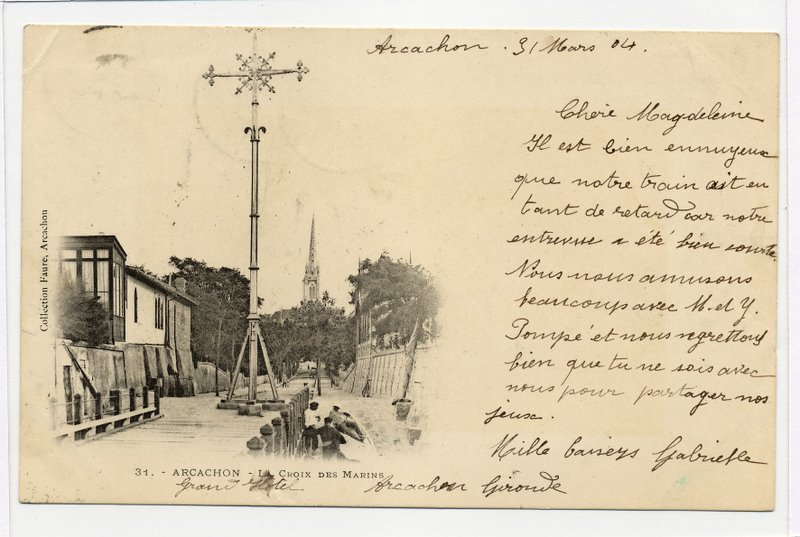 Arcachon . 31 Mars 04.
Chère Magdeleine
Il est bien ennuyeux
que notre train ait eu
tant de retard car notre
entrevue a été bien courte.
Nous nous amusons
beaucoup avec M. et Y.
Pompé et nous regrettons
bien que tu ne sois avec
nous pour partager nos
jeux.
Mille baisers Gabrielle
Collection Faure, Arcachon
31. - ARCACHON - LA CROIX DES MARINS
Grand Hotel Arcachon Gironde